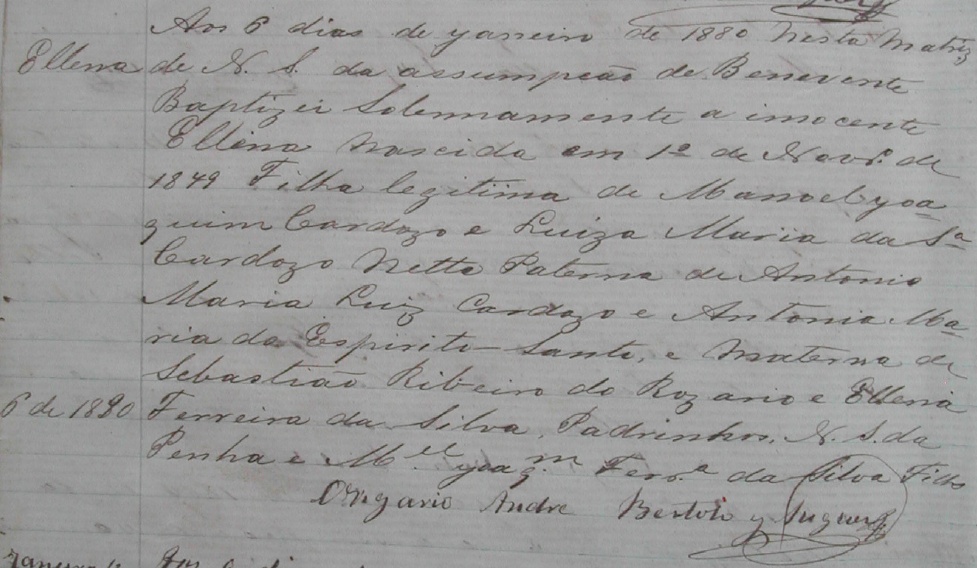 Aos 6 dias de yaneiro de 1880 Nesta Matriz
Ellena de N. S. da assumpção de Benevente
Baptizei Solennamente a innocente
Ellena Nascida em 1º de Novº. de
1849 Filha legitima de Manoel yoa
quim Cardozo e Luiza Maria da Sª
Cardozo Netta Paterna de Antonio
Maria Luiz Cardozo e Antonia Ma
ria do Espirito Santo, e Materna de
Sebastião Ribeiro do Rozario e Ellena
6 de 1880 Ferreira da Silva, Padrinhos, N. S. da
Penha e M.el yoa q.m Ferr.a da Silva
Andre Bertoli y